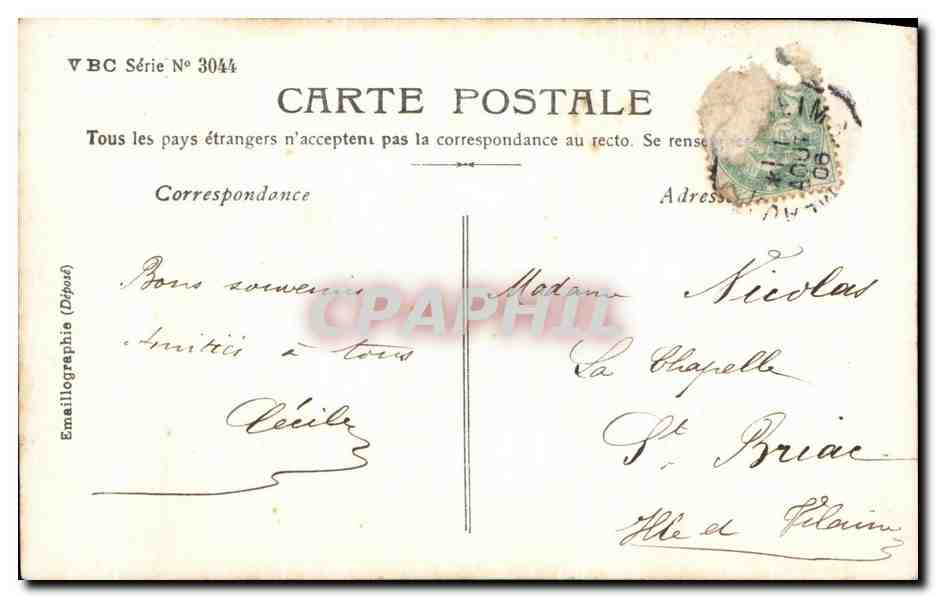 VBC Série Nº 3044
CARTE POSTALE
Tous les pays étrangers n'acceptent pas la correspondance au recto. Se rense
Correspondance
Adress
11
AOUT
06
Emaillographie (Déposé)
Bons souvenirs
Amitiés à tous
Cécile
Madame Nicolas
La Chapelle
St. Briac
Ille et Vilaine
CPAPHIL